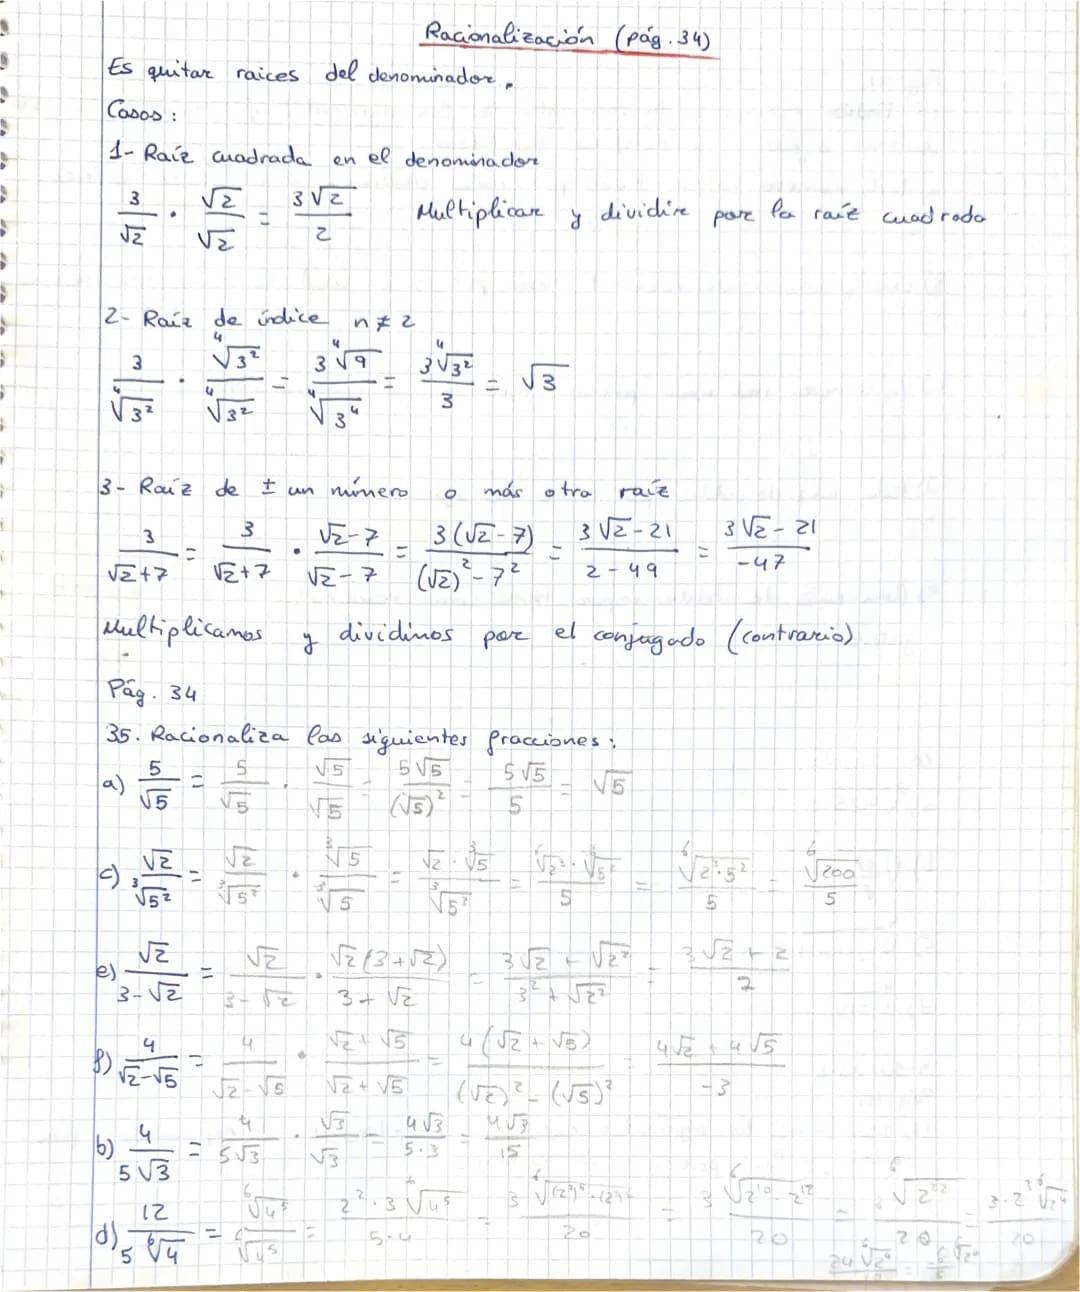 Racionalización (pág. 34)
Es quitar raices del denominador.
Casos:
1- Raíz cuadrada en el denominador
3/√2 · √2/√2 = 3√2/2 Multiplicar y dividir por la raíz cuadrada
2- Raíz de índice n ≠ 2
3/⁴√3² · ⁴√3²/⁴√3² = 3⁴√9/⁴√3⁴ = 3⁴√3²/3 = √3
3- Raíz de ± un número o más otra raíz
3/(√2+7) = 3/(√2+7) · (√2-7)/(√2-7) = 3(√2-7)/((√2)²-7²) = (3√2-21)/(2-49) = (3√2-21)/-47
Multiplicamos y dividimos por el conjugado (contrario)
Pág. 34
35. Racionaliza las siguientes fracciones:
a) 5/√5 = 5/√5 · √5/√5 = 5√5/(√5)² = 5√5/5 = √5
c) √2/³√5² = √2/³√5² · ³√5/³√5 = √2·³√5/³√5³ = ⁶√2³·⁶√5²/5 = ⁶√2³·5²/5 = ⁶√200/5
e) √2/(3-√2) = √2/(3-√2) · √2(3+√2)/(3+√2) = (3√2+√2²)/(3²+√2²) = (3√2+2)/7
f) 4/(√2-√5) = 4/(√2-√5) · (√2+√5)/(√2+√5) = 4(√2+√5)/((√2)²-(√5)²) = (4√2+4√5)/-3
b) 4/5√3 = 4/5√3 · √3/√3 = 4√3/5·3 = 4√3/15
d) 12/5⁶√4 = ⁶√4⁵/⁶√4⁵ = 2²·3⁶√4⁵/5·4 = 3⁶√2¹⁰·2¹²/20 = ⁶√2²²/20